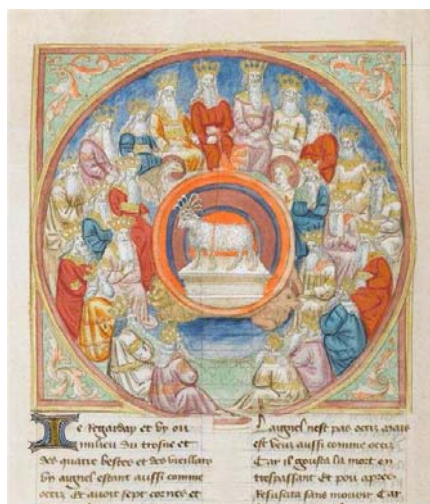 Ie Regarday et vy ou
milieu du trosne et
des quatre bestes et des vieillars
vng aignel estant aussi comme
occiz et auoit sept cornes et
Laignel nest pas occiz mais
est veu aussi comme occiz
Car il gousta la mort en
trespassant Et pou apres
Resusita sans mourir Car